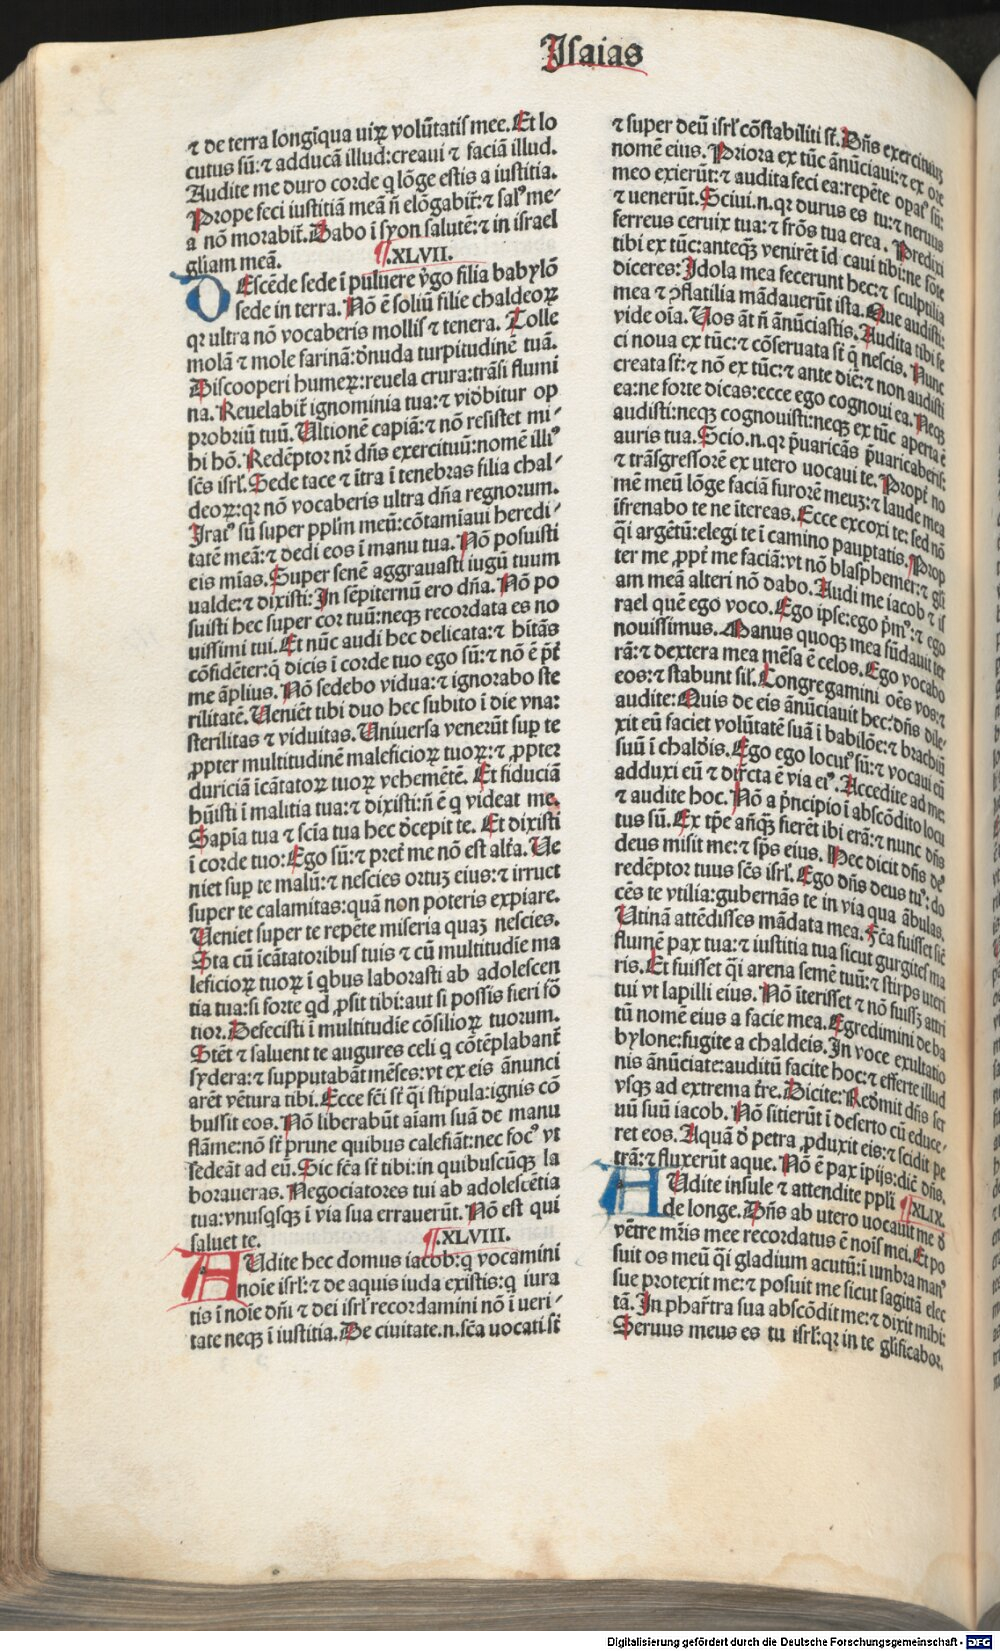 Isaias
⁊ de terra longīqua uiꝝ volūtatis mee. Et lo
cutus sū: ⁊ adducā illud: creaui ⁊ faciā illud.
Audite me duro corde q lōge estis a iustitia.
Prope feci iustitiā meā ñ elōgabit̄: ⁊ salꝰ me-
a nō morabit̄. Dabo ī syon salutē: ⁊ in israel
gl̄iam meā. ¶.XLVII.
DEscēde sede ī puluere v̓go filia babylō
sede in terra. Nō ē soliū filie chaldeoꝝ
qꝛ ultra nō vocaberis mollis ⁊ tenera. Tolle
molā ⁊ mole farinā: d̓nuda turpitudinē tuā.
Discooperi humeꝝ: reuela crura: trāsi flumi
na. Reuelabit̄ ignominia tua: ⁊ vid̓bitur op
probriū tuū. Ultionē capiā: ⁊ nō resistet mi-
hi hō. Redēptor nr̄ dn̄s exercituū: nomē illiꝰ
scs̄ isrl̄. Sede tace ⁊ ītra ī tenebras filia chal-
deoꝝ: qꝛ nō vocaberis ultra dn̄a regnorum.
Iratꝰ sū super ppl̄m meū: cōtamiaui heredi-
tatē meā: ⁊ dedi eos ī manu tua. Nō posuisti
eis mīas. Super senē aggrauasti iugū tuum
ualde: ⁊ dixisti: In sēpiternū ero dn̄a. Nō po
suisti hec super cor tuū: neqꝫ recordata es no
uissimi tui. Et nūc audi hec delicata: ⁊ hītās
cōfidēter: q̄ dicis ī corde tuo ego sū: ⁊ nō ē p̄t̄
me āplius. Nō sedebo vidua: ⁊ ignorabo ste
rilitatē. Ueniēt tibi duo hec subito ī die vna:
sterilitas ⁊ viduitas. Uniuersa venerūt suꝑ te
ꝓpter multitudinē maleficioꝝ tuoꝝ: ⁊ ꝓpter
duriciā īcātatoꝝ tuoꝝ vehemētē. Et fiduciā
hūisti ī malitia tua: ⁊ dixisti: ñ ē q videat me.
Sapīa tua ⁊ scīa tua hec d̓cepit te. Et dixisti
ī corde tuo: Ego sū: ⁊ pret̄ me nō est alt̄a. Ue
niet suꝑ te malū: ⁊ nescies ortuꝫ eius: ⁊ irruet
super te calamitas: quā non poteris expiare.
Ueniet super te repēte miseria quaꝫ nescies.
Sta cū īcātatoribus tuis ⁊ cū multitudīe ma
leficioꝝ tuoꝝ ī qbus laborasti ab adolescen
tia tua: si forte qd ꝓsit tibi: aut si possis fieri fō
tior. Defecisti ī multitudīe cōsilioꝝ tuorum.
Stēt ⁊ saluent te augures celi q cōtēplabant̄
sydera: ⁊ supputabāt mēses: vt ex eis ānunci
arēt vētura tibi. Ecce fc̄i st̄ q̄i stipula: ignis cō
bussit eos. Nō liberabūt aīam suā de manu
flāme: nō st̄ prune quibus calefiāt: nec focꝰ vt
sedeāt ad eū. Sic fc̄a st̄ tibi: in quibuscūqꝫ la
boraueras. Negociatores tui ab adolescētia
tua: vnusqsqꝫ ī via sua errauerūt. Nō est qui
saluet te. ¶.XLVIII.
AUdite hec domus iacob: q vocamini
noīe isrl̄: ⁊ de aquis iuda existis: q iura
tis ī noīe dn̄i ⁊ dei isrl̄ recordamini nō ī ueri-
tate neqꝫ ī iustitia. De ciuitate .n. sc̄a uocati st̄
⁊ super deū isrl̄ cōstabiliti st̄. Dn̄s exercituuꝫ
nomē eius. Priora ex tūc ānūciaui: ⁊ ex ore
meo exierūt: ⁊ audita feci ea: repēte opatꝰ sū:
⁊ uenerūt. Sciui .n. qꝛ durus es tu: ⁊ neruus
ferreus ceruix tua: ⁊ frōs tua erea. Predixi
tibi ex tūc: anteqꝫ venirēt īd caui tibi: ne fōte
diceres: Idola mea fecerunt hec: ⁊ sculptilia
mea ⁊ ꝯflatilia mādauerūt ista. Que audisti:
vide oīa. Uos āt ñ ānūciastis. Audita tibi fe
ci noua ex tūc: ⁊ cōseruata st̄ q̄ nescis. Nunc
creata st̄: ⁊ nō ex tūc: ⁊ ante diē: ⁊ non audisti
ea: ne forte dicas: ecce ego cognoui ea. Neqꝫ
audisti: neqꝫ cognouisti: neqꝫ ex tūc aperta ē
auris tua. Scio .n. qꝛ p̄uaricās p̄uaricaberis:
⁊ trāsgressorē ex utero uocaui te. Propt̄ no
mē meū lōge faciā furorē meuꝫ: ⁊ laude mea
īfrenabo te ne ītereas. Ecce excoxi te: sed nō
q̄i argētū: elegi te ī camino pauptatis. Prop
ter me ꝓpt̄ me faciā: vt nō blasphemer: ⁊ gl̄i
am meā alteri nō dabo. Audi me iacob ⁊ is
rael quē ego voco. Ego ipse: ego p̄mꝰ: ⁊ ego
nouissimus. Manus quoqꝫ mea fūdauit ter
rā: ⁊ dextera mea mēsa ē celos. Ego vocabo
eos: ⁊ stabunt sil̄. Congregamini oēs vos: ⁊
audite: Quis de eis ānūciauit hec: dn̄s dile-
xit eū faciet volūtatē suā ī babilōe: ⁊ brachiū
suū ī chald̓is. Ego ego locutꝰ sū: ⁊ vocaui eū
adduxi eū ⁊ dir̄cta ē via eiꝰ. Accedite ad me:
⁊ audite hoc. Nō a p̄ncipio ī abscōdito locu
tus sū. Ex tp̄e añqꝫ fierēt ibi erā: ⁊ nunc dn̄s
deus misit me: ⁊ sp̄s eius. Hec dicit dn̄s deꝰ
redēptor tuus scs̄ isrl̄. Ego dn̄s deus tuꝰ: do
cēs te vtilia: gubernās te in via qua ābulas.
Utinā attēdisses mādata mea. Fc̄a fuisset sic̄
flumē pax tua: ⁊ iustitia tua sicut gurgites ma
ris. Et fuisset q̄i arena semē tuū: ⁊ stirps uteri
tui vt lapilli eius. Nō īterisset ⁊ nō fuissꝫ attri
tū nomē eius a facie mea. Egredimini de ba
bylone: fugite a chaldeis. In voce exultatio
nis ānūciate: auditū facite hoc: ⁊ efferte illud
vsqꝫ ad extrema t̄re. Dicite: Red̓mit dn̄s ser
uū suū iacob. Nō sitierūt ī deserto cū educe-
ret eos. Aquā d̓ petra ꝓduxit eis: ⁊ scidit pe
trā: ⁊ fluxerūt aque. Nō ē pax ipijs: dic̄ dn̄s.
AUdite insule ⁊ attendite ppl̄i ¶XLIX.
de longe. Dn̄s ab utero uocauit me d̓
vētre mr̄is mee recordatus ē noīs mei. Et po
suit os meū q̄i gladium acutū: ī umbra manꝰ
sue protexit me: ⁊ posuit me sicut sagittā elec
tā. In phar̄tra sua abscōdit me: ⁊ dixit mihi:
Seruus meus es tu isrl̄: qꝛ in te gl̄ificabor.
Digitalisierung gefördert durch die Deutsche Forschungsgemeinschaft - DFG